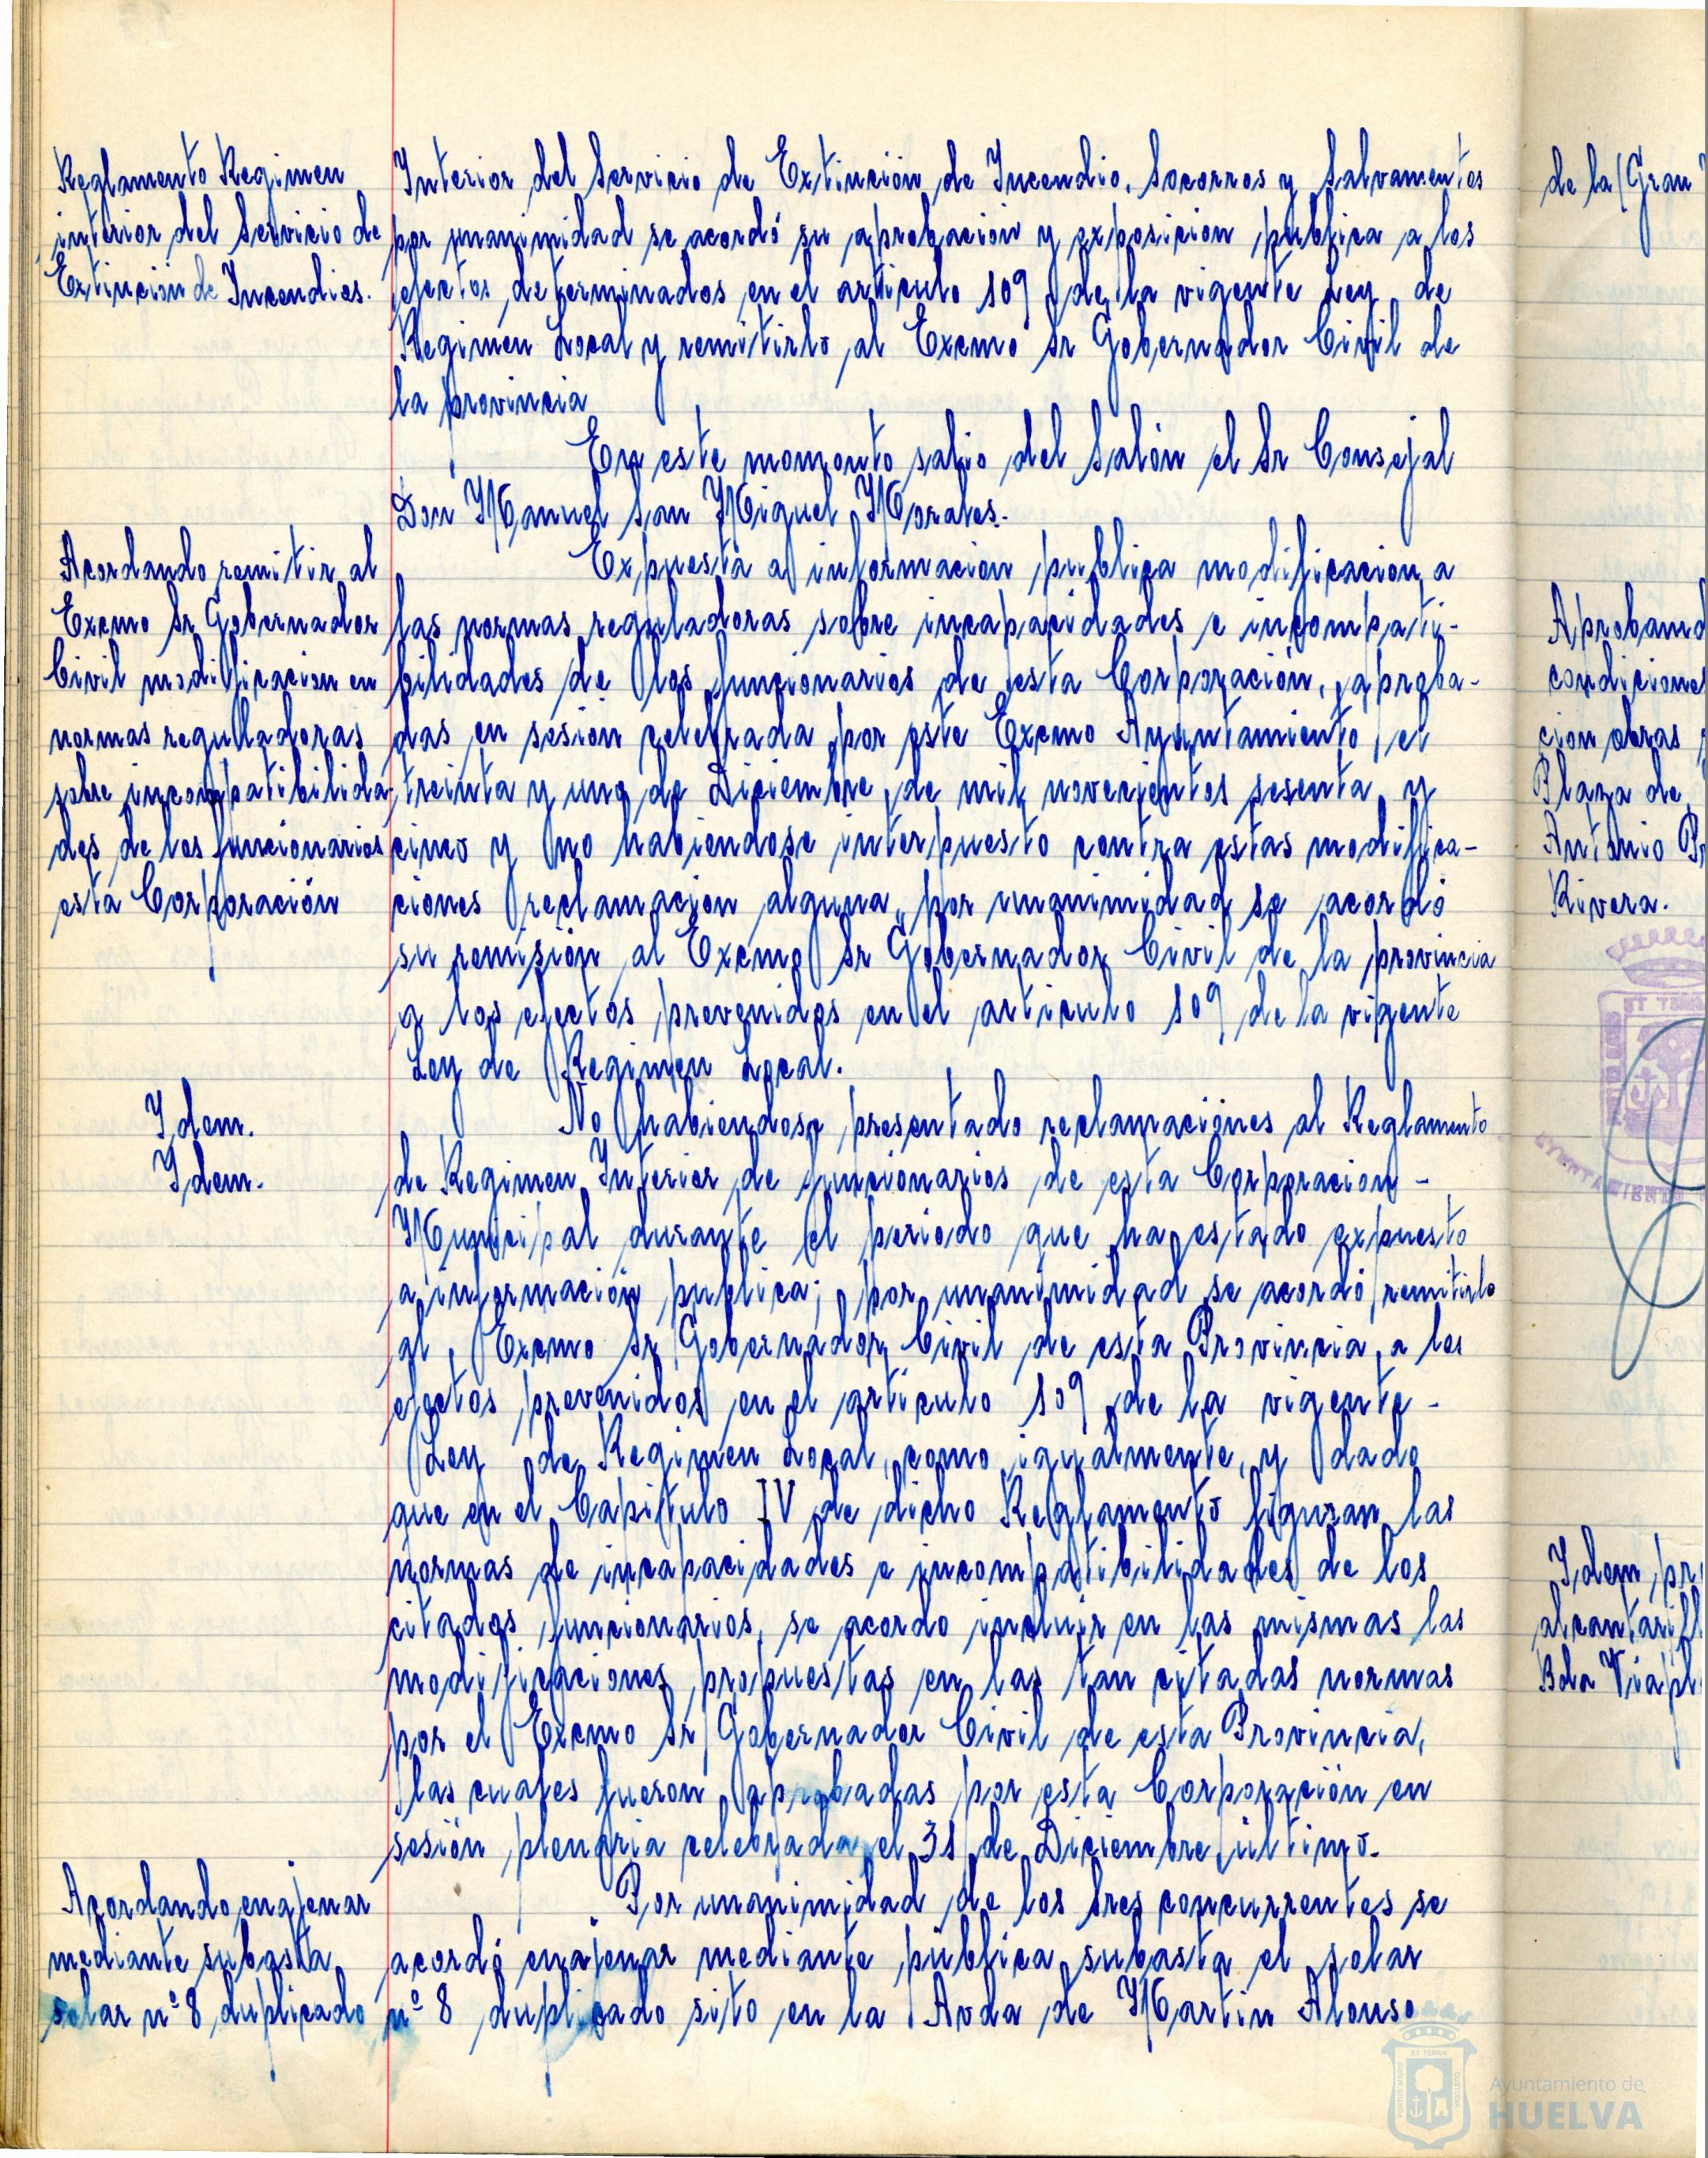 Reglamento Regimen
interior del Servicio de
Extinción de Incendios.
Interior del Servicio de Extinción de Incendio, Socorros y Salvamentos
por unanimidad se acordó su aprobacion y exposicion publica a los
efectos determinados en el articulo 109 de la vigente Ley de
Regimen Local y remitirlo al Excmo Sr Gobernador Civil de
la provincia
En este momento salio del Salón el Sr Consejal
Don Manuel San Miguel Morales.
Acordando remitir al
Excmo Sr Gobernador
Civil modificacion en
normas reguladoras
sobre incompatibilida-
des de los funcionarios
esta Corporación
Expuesta a informacion publica modificacion a
las normas reguladoras sobre incapacidades e incompati-
bilidades de los funcionarios de esta Corporación, aproba-
das en sesión celebrada por este Excmo Ayuntamiento el
treinta y uno de Diciembre de mil novecientos sesenta y
cinco y no habiendose interpuesto contra estas modifica-
ciones reclamación alguna, por unanimidad se acordó
su remisión al Excmo Sr Gobernador Civil de la provincia
a los efectos prevenidos en el articulo 109 de la vigente
Ley de Regimen Local.
Idem.
Idem.
No habiendose presentado reclamaciones al Reglamento
de Regimen Interior de funcionarios de esta Corporacion -
Municipal durante el periodo que ha estado expuesto
a información publica; por unanimidad se acordó remitirlo
al Excmo Sr Gobernador Civil de esta Provincia, a los
efectos prevenidos en el articulo 109 de la vigente -
Ley de Regimen Local, como igualmente, y dado
que en el Capitulo IV de dicho Reglamento figuran las
normas de incapacidades e incompatibilidades de los
citados funcionarios, se acordo incluir en las mismas las
modificaciones propuestas en las tan citadas normas
por el Excmo Sr Gobernador Civil de esta Provincia,
las cuales fueron aprobadas por esta Corporación en
sesión plenaria celebrada el 31 de Diciembre último.
Acordando enajenar
mediante subasta
solar nº 8 duplicado
Por unanimidad de los Sres concurrentes se
acordó enajenar mediante pública subasta el solar
nº 8 duplicado sito en la Avda de Martin Alonso
de la Gran
Aproband
condicione
cion obras
Plaza de
Antonio
Rivera.
Idem pr
alcantarill
Bda Viapl
Ayuntamiento de
HUELVA